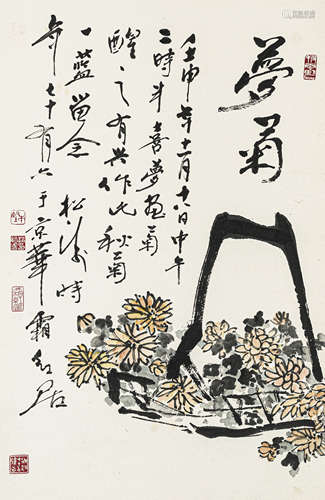 夢菊
壬申年十一月十六日中午
二時半喜夢画菊
醒之有興作此秋菊
一藍留念 松涛時
年七十有六于京華霜紅居